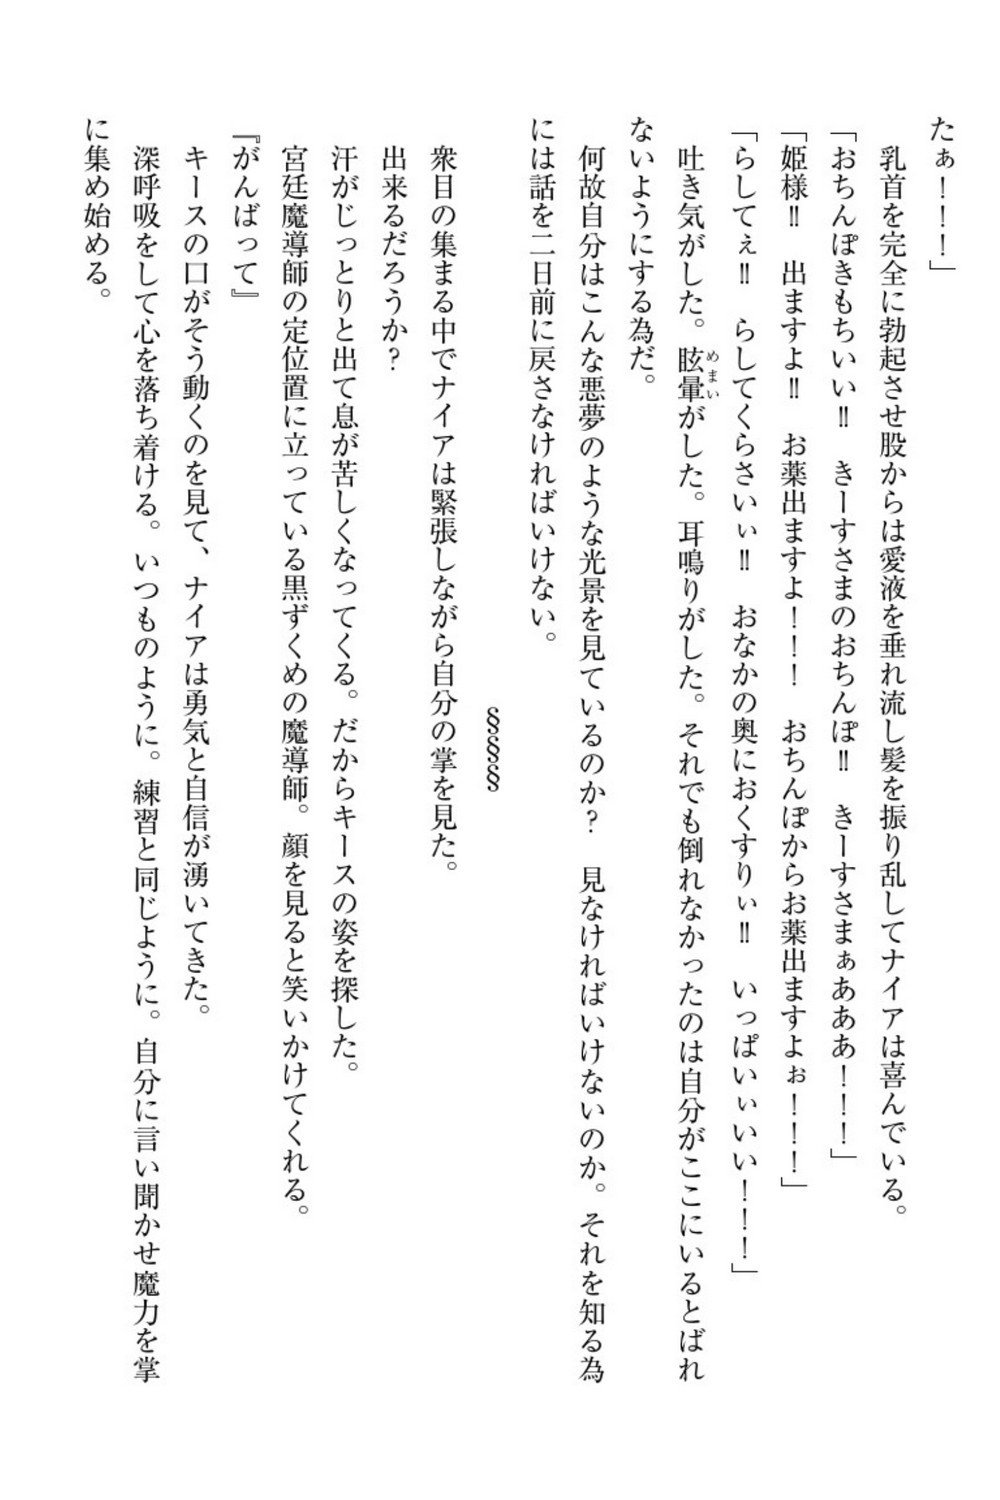 たぁ！！！」
　乳首を完全に勃起させ股からは愛液を垂れ流し髪を振り乱してナイアは喜んでいる。
「おちんぽきもちいい‼　きーすさまのおちんぽ‼　きーすさまぁあああ！！！」
「姫様‼　出ますよ‼　お薬出ますよ！！！　おちんぽからお薬出ますよぉ！！！」
「らしてぇ‼　らしてくらさいぃ‼　おなかの奥におくすりぃ‼　いっぱいぃいい！！！」
　吐き気がした。眩暈めまいがした。耳鳴りがした。それでも倒れなかったのは自分がここにいるとばれ
ないようにする為だ。
　何故自分はこんな悪夢のような光景を見ているのか？　見なければいけないのか。それを知る為
には話を二日前に戻さなければいけない。
§§§
　衆目の集まる中でナイアは緊張しながら自分の掌を見た。
　出来るだろうか？
　汗がじっとりと出て息が苦しくなってくる。だからキースの姿を探した。
　宮廷魔導師の定位置に立っている黒ずくめの魔導師。顔を見ると笑いかけてくれる。
『がんばって』
　キースの口がそう動くのを見て、ナイアは勇気と自信が湧いてきた。
　深呼吸をして心を落ち着ける。いつものように。練習と同じように。自分に言い聞かせ魔力を掌
に集め始める。